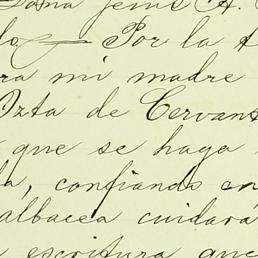 Doña Jenis A.
do — Por la
ra mi madre
Ozta de Cervant
que se haga
a, confiando en
albacea cuidará
escritura que